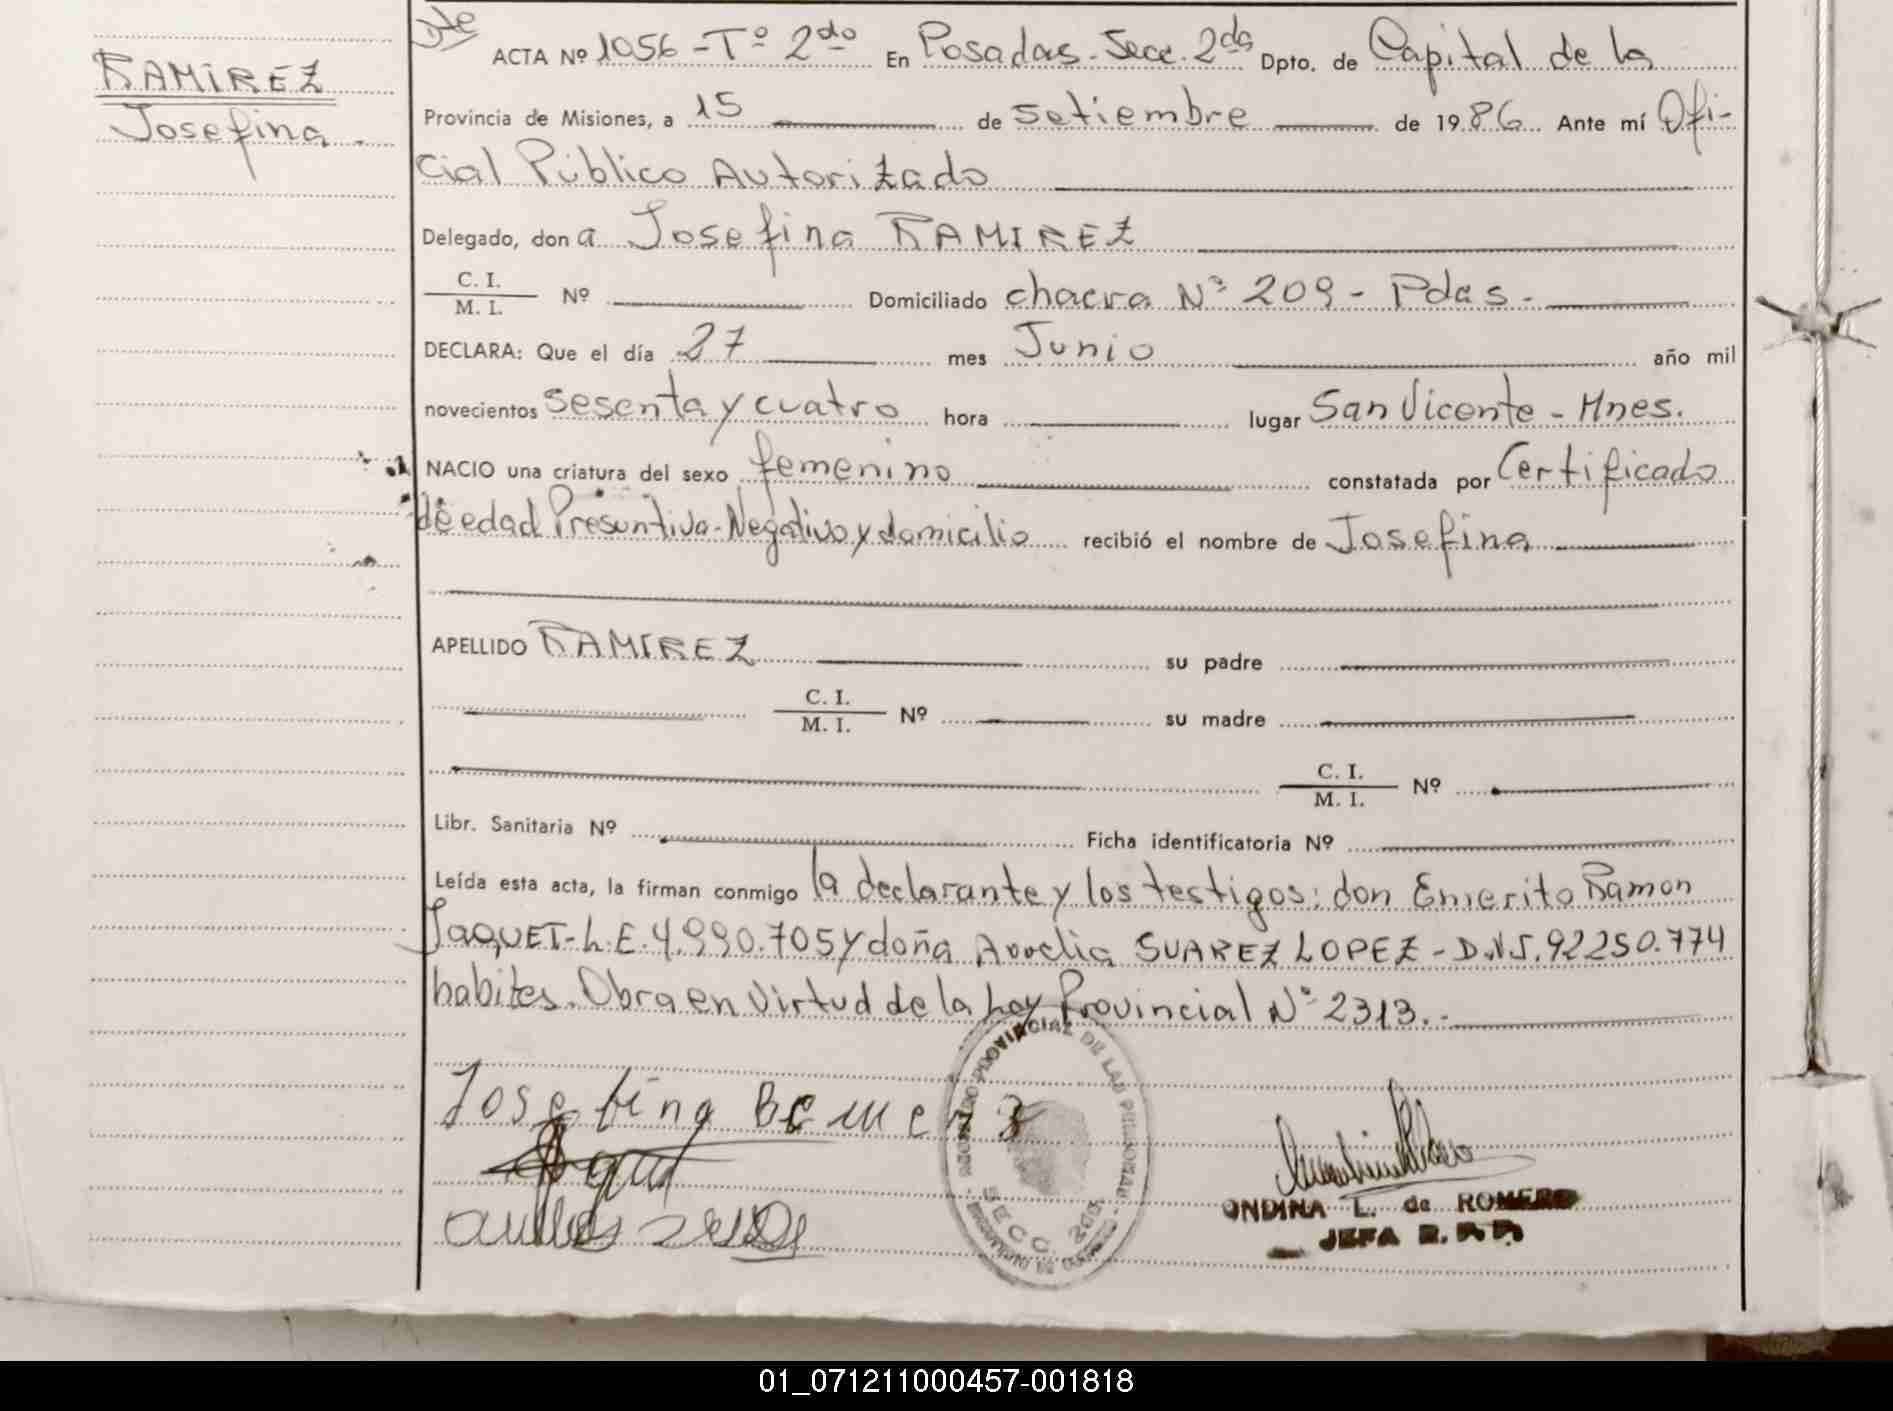 RAMIREZ
Josefina.
Dte
ACTA Nº 1056 - Tº 2do En Posadas. Secc. 2da Dpto. de Capital de la
Provincia de Misiones, a 15 de setiembre de 1986. Ante mí Ofi-
cial Público Autorizado
Delegado, don a Josefina RAMIREZ
C. I.
M. I. Nº Domiciliado chacra Nº 209 - Pdas.
DECLARA: Que el día 27 mes Junio año mil
novecientos sesenta y cuatro hora lugar San Vicente - Mnes.
NACIO una criatura del sexo femenino constatada por Certificado
de edad Presuntiva-Negativo y domicilio recibió el nombre de Josefina
APELLIDO RAMIREZ su padre
C. I.
M. I. Nº su madre
C. I.
M. I. Nº
Libr. Sanitaria Nº Ficha identificatoria Nº
Leída esta acta, la firman conmigo la declarante y los testigos: don Emerito Ramon
JAQUET - L.E. 4.990.705 y doña SUAREZ LOPEZ - D.N.I. 92250.774
habiles. Obra en Virtud de la Ley Provincial Nº 2313.-
Josefina
SECC. 2da
ONDINA L. de ROMERO
JEFA R.P.P.
01_071211000457-001818